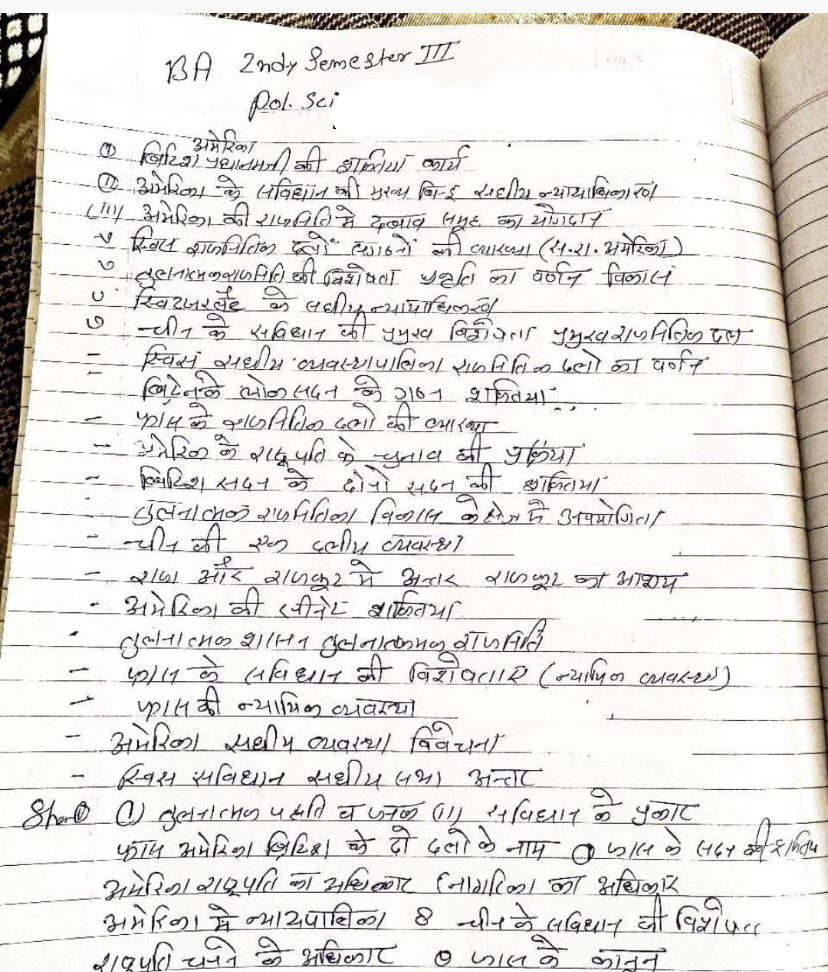 BA 2ndy Semester III
Pol. Sci
अमेरिका
① ब्रिटिश प्रधानमन्त्री की शक्तियां कार्य
② अमेरिका के संविधान की मुख्य संघीय न्यायाधिकारी
(iii) अमेरिका की राजनिति मे दबाव समूह का योगदान
स्विस राजनितिक दलों की व्याख्या (स.रा. अमेरिका)
तुलनात्मक राजनिति की विशेषता प्रकृति का वर्णन विकास
स्विटजरलैंड के संघीय
चीन के संविधान की प्रमुख विशेषता प्रमुख राजनितिक दल
– स्विस संघीय व्यवस्थापिका राजनितिक दलो का वर्णन
ब्रिटेन के लोक सदन के गठन शक्तियां
– फ्रांस के राजनितिक दलों की व्याख्या
– अमेरिका के राष्ट्रपति के चुनाव की प्रक्रिया
– ब्रिटिश सदन के दोनो सदन की शक्तियां
– तुलनात्मक राजनितिका विकास के क्षेत्र मे उपयोगिता
– चीन की एक दलीय व्यवस्था
– राजा और राजकूट मे अन्तर राजकूट का आशय
- अमेरिका की सीनेट शक्तियां
- तुलनात्मक शासन तुलनात्मक राजनिति
– फ्रांस के संविधान की विशेषताएं (न्यायिक व्यवस्था)
– फ्रांस की न्यायिक व्यवस्था
– अमेरिका संघीय व्यवस्था विवेचना
– स्विस संविधान संघीय सभा अन्तर
(i) तुलनात्मक पद्धति व जनक (ii) संविधान के प्रकार
फ्रांस अमेरिका ब्रिटिश के दो दलो के नाम फ्रांस के सदन की शक्तियां
अमेरिका राष्ट्रपति का अधिकार नागरिका का अधिकार
अमेरिका मे न्यायपालिका 8 चीन के संविधान की विशेषता
राष्ट्रपति के अधिकार फ्रांस के कानून